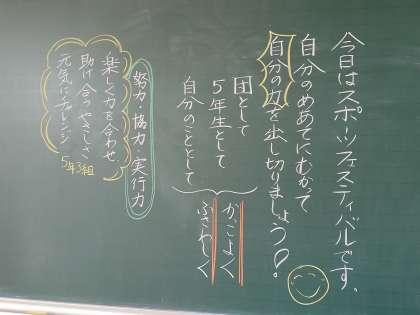 今日はスポーツフェスティバルです。
自分のめあてにむかって
自分の力を出し切りましょう!
団として
5年生として
自分のこととして
かっこよく
ふさわしく
努力・協力・実行力
楽しく力を合わせ
助け合うやさしさ
元気にチャレンジ
5年3組